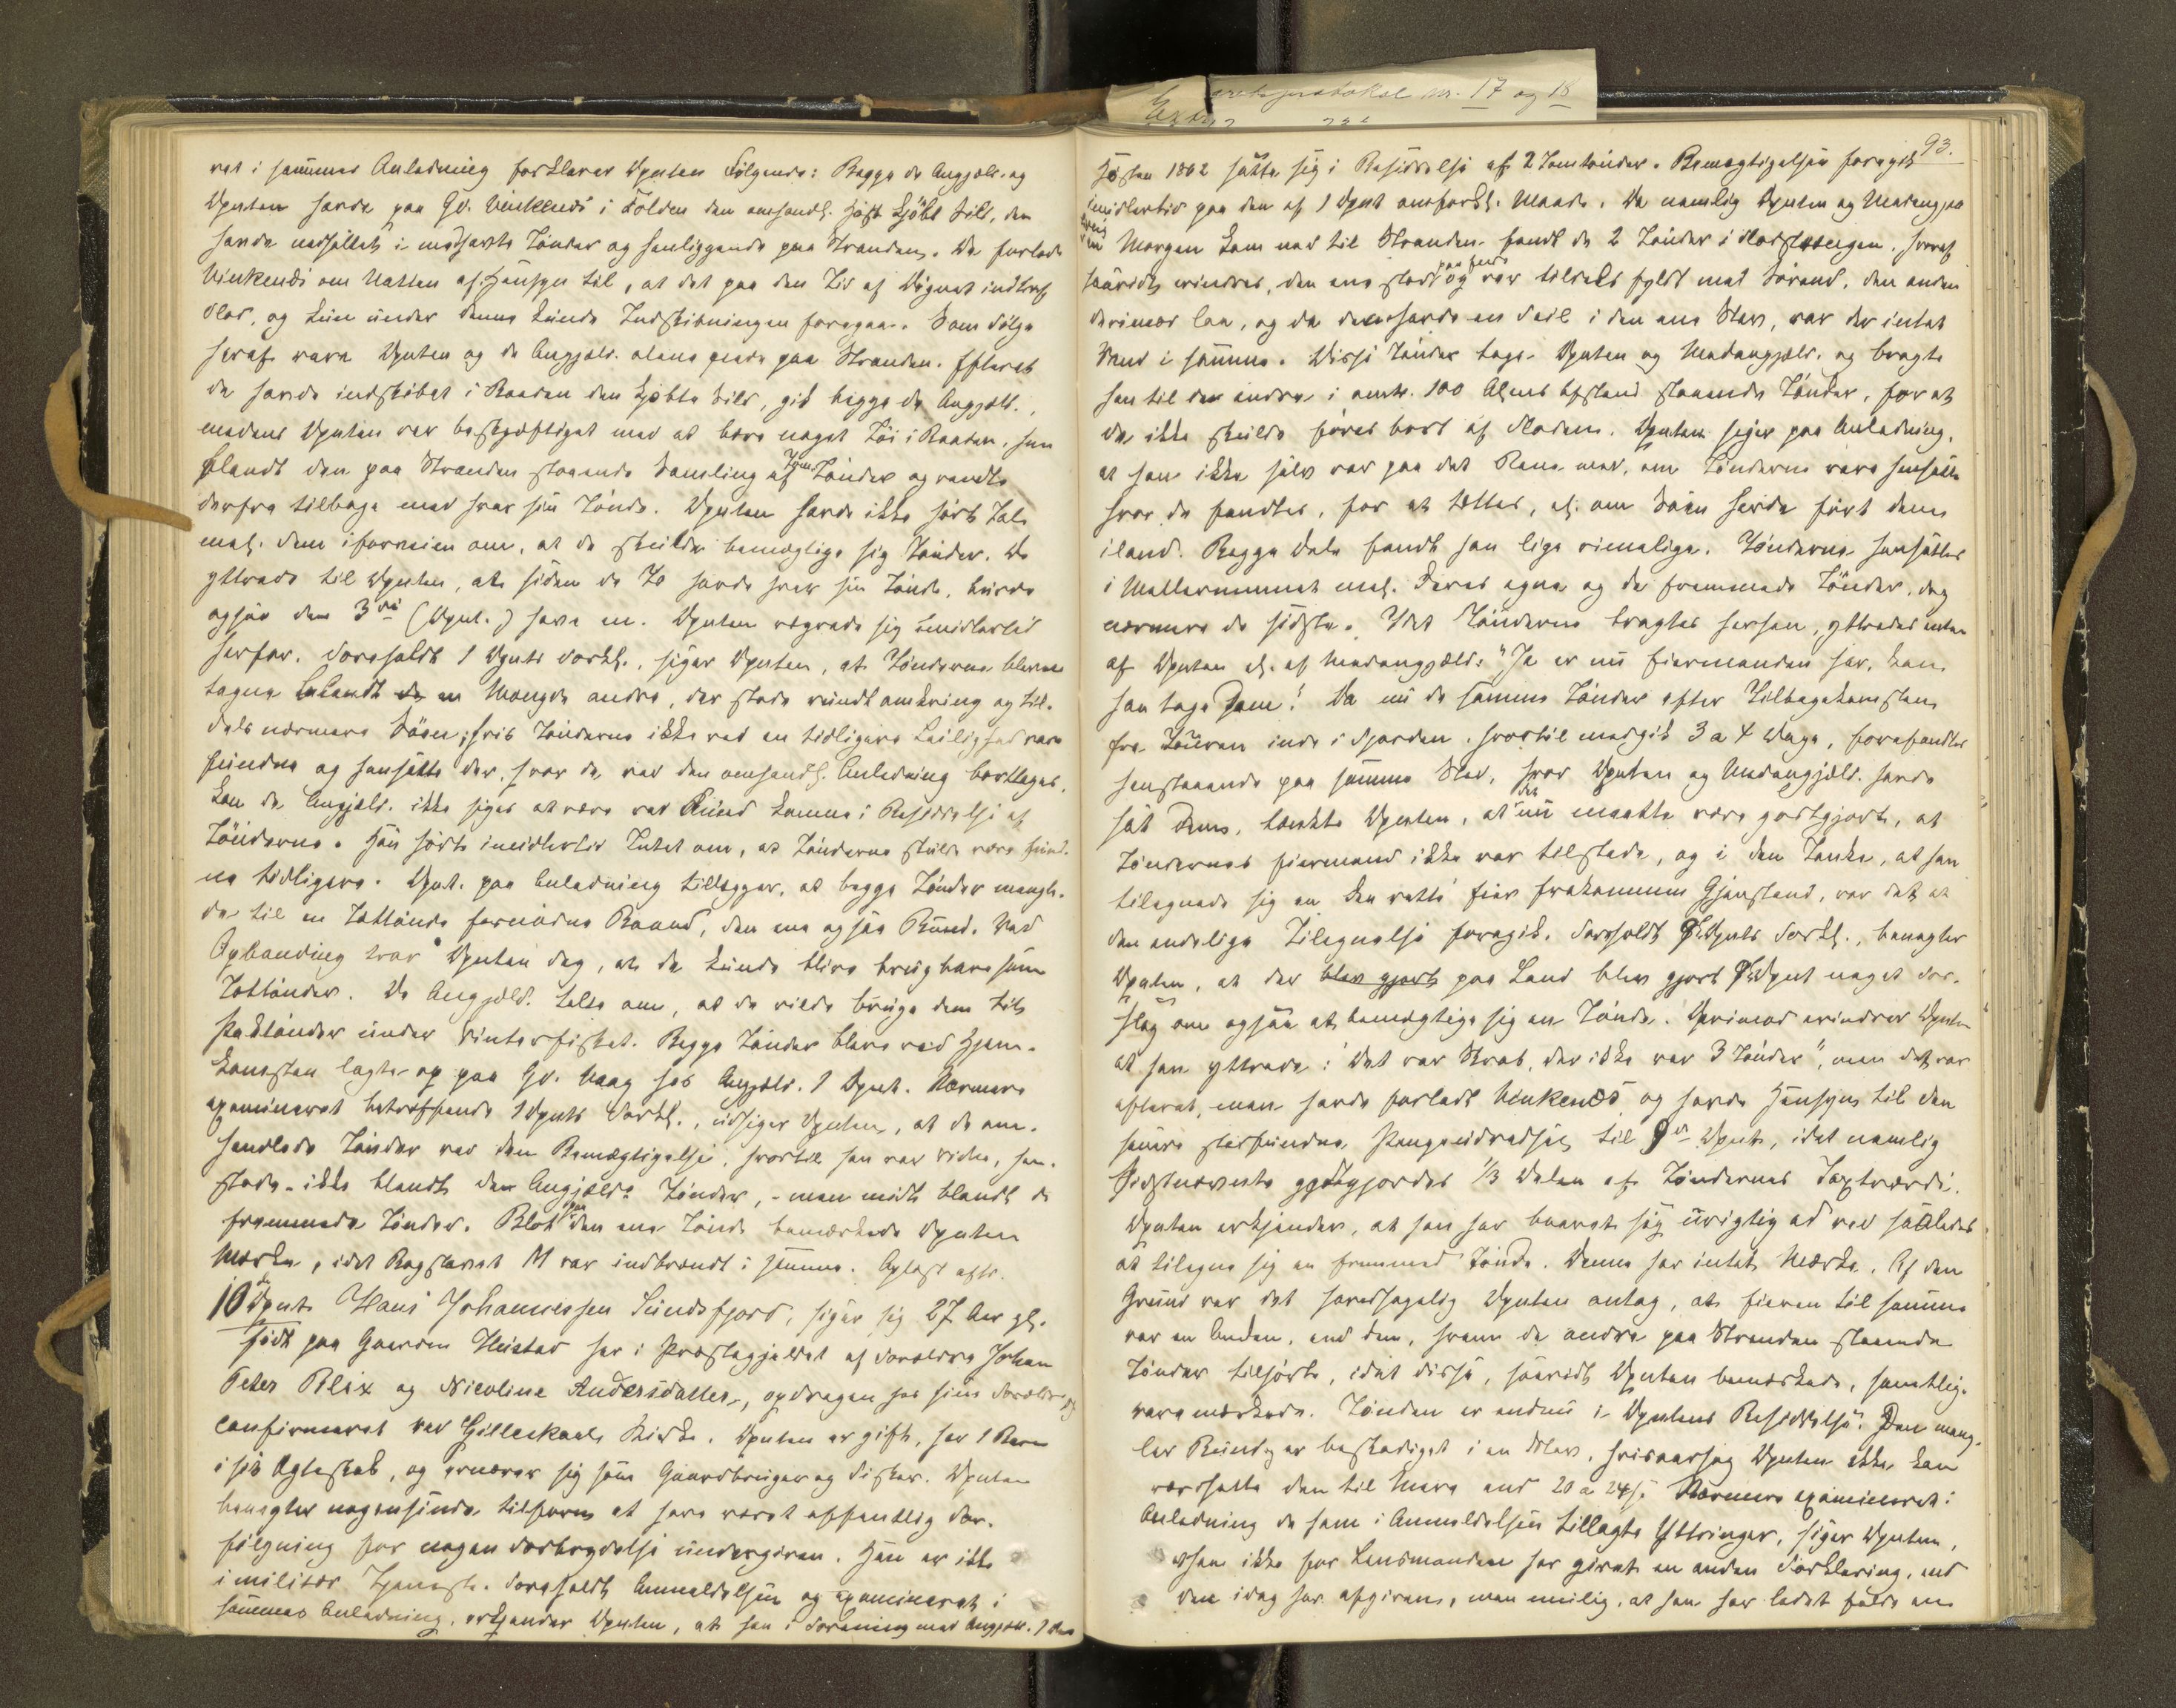 Extraretsprotokol nr. 17 og 18
ret i sammes Anledning forklarer Dputen Følgende: Begge de Angjæld. og
Dputen havde paa Gd. Vinkenæs i Folden den omhandl. Høst kjøbt Sild, den
havde nedsaltet i medhavte Tønder og henliggende paa Stranden. De forlode
Vinkenæs om Natten af Hensyn til, at det paa den Tid af Døgnet indtraf
Flod, og kun under denne kunde Indskibningen foregaa. Som Følge
heraf vare Dputen og de Angjæld. alene paa Stranden. Efterat
de havde indskibet i Baaden den kjøbte Sild, gik begge de Angjæld.,
medens Dputen var beskjæftiget med at bære noget Tøi i Baaden, hen
blandt den paa Stranden staaende Samling af Tomtønder og vendte
derfra tilbage med hver sin Tønde. Dputen havde ikke hørt Tale
mel. dem iforveien om, at de skulde bemægtige sig Tønder. De
yttrede til Dputen, at siden de To havde hver sin Tønde, burde
ogsaa den 3die (Dput.) have en. Dputen vægrede sig imidlertid
herfor. Foreholdt 1 Dputs Forkl., siger Dputen, at Tønderne bleve
tagne iblandt en Mængde andre, der stode rundt omkring og til-
dels nærmere Søen; hvis Tønderne ikke ved en tidligere Leilighed vare
fundne og hensatte der, hvor de ved den omhandl. Anledning borttoges,
kan de Angjæld. ikke siges at være ved Fund komne i Besiddelse af
Tønderne. Han hørte imidlertid Intet om, at Tønderne skulde være fund-
ne tidligere. Dput. paa Anledning tillægger, at begge Tønder mangle-
de til en Tættønde fornødne Baand, den ene ogsaa Bund. Ved
Opbanding tror Dputen dog, at de kunde blive brugbare som
Tættønder. De Angjæld. talte om, at de vilde bruge dem til
Paktønder under Vinterfisket. Begge Tønder bleve ved Hjem-
komsten lagte op paa Gd. Vaag hos Angjæld. 1 Dput. Nærmere
examineret betræffende 1 Dputs Forkl., udsiger Dputen, at de om-
handlede Tønder ved den Bemægtigelse, hvortil han var Vidne, hen-
stode – ikke blandt de Angjælds Tønder, – men midt blandt de
fremmede Tønder. Blot paa den ene Tønde bemærkede Dputen
Mærke, idet Bogstavet M var indbrændt i samme. Oplæst aftr.
10de Dput Hans Johannessen Sundsfjord, siger sig 27 Aar gl.
født paa Gaarden her i Præstegjældet af Forældre Johan
Peter Blix og Nicoline Andersdatter, opdragen hos sine Forældre og
confirmeret ved Gilleskaals Kirke. Dputen er gift, har 1 Barn
i sit Ægteskab, og ernærer sig som Gaardbruger og Fisker. Dputen
benægter nogensinde tilforn at have været offentlig For-
følgning for nogen Forbrydelse undergiven. Han er ikke
i militær Tjeneste. Foreholdt Anmeldelsen og examineret i
sammes Anledning, erkjender Dputen, at han i Forening med Angjæld. 9 Dput
93.
Høsten 1862 satte sig i Besiddelse af 2 Tomtønder. Bemægtigelsen foregik
imidlertid paa den af 1 Dput omforkl. Maade. Da nemlig Dputen og Medangjæld
en Morgen kom ned til Stranden fandt de 2 Tønder i Flodstrengen, hvoraf
saavidt erindres, den ene stod paa Ende og var tildels fyldt med Søvand, den anden
derimod laa, og da der havde en Feil i den ene Stav, var der intet
Vand i samme. Disse Tønder toge Dputen og Medangjæld. og bragte
hen til de andre i omtr. 100 Alens Afstand staaende Tønder, for at
de ikke skulde føres bort af Floden. Dputen siger paa Anledning,
at han ikke selv var paa det Rene med, om Tønderne vare hensatte
hvor de fandtes, for at tættes, el. om Søen havde ført dem
iland. Begge Dele fandt han lige rimelige. Tønderne hensattes
i Mellemrummet mel. deres egne og de fremmede Tønder, dog
nærmere de sidste. Idet Tønderne bragtes herhen, yttredes enten
af Dputen el. af Medangjæld: "Ja er nu Eiermanden her, kan
han tage dem"! Da nu de samme Tønder efter Tilbagekomsten
fra Touren inde i Fjorden, hvortil medgik 3 a 4 Dage, forefandtes
henstaaende paa samme Sted, hvor Dputen og Medangjæld. havde
sat dem, tænkte Dputen, at det nu maatte være godtgjort, at
Tøndernes Eiermand ikke var tilstede, og i den Tanke, at han
tilegnede sig en den rette Eier frakommen Gjenstand, var det at
den endelige Tilegnelse foregik. Foreholdt 9de Dputs Forkl., benægter
Dputen, at der blev gjort paa Land blev gjort 9de Dput noget For-
slag om ogsaa at bemægtige sig en Tønde. Derimod erindrer Dputen
at han yttrede: "det var Skade, der ikke var 3 Tønder", men det var
efterat man havde forladt Vinkenæs og havde Hensyn til den
senere stedfundne Pengeudredsel til 9de Dput, idet nemlig
Sidstnævnte godtgjordes 1/3 Delen af Tøndernes Taxtværdi.
Dputen erkjender, at han har baaret sig urigtig ad ved saaledes
at tilegne sig en fremmed Tønde. Denne har intet Mærke. Af den
Grund var det hovedsagelig Dputen antog, at Eieren til samme
var en Anden, end den, hvem de andre paa Stranden staaende
Tønder tilhørte, idet disse, saavidt Dputen bemærkede, samtlige
vare mærkede. Tønden er endnu i Dputens Besiddelse. Den mang-
ler Bund og er beskadiget i en Stav, hvisaarsag Dputen ikke kan
værdsætte den til mere end 20 a 24 s. Nærmere examineret i
Anledning de ham i Anmeldelsen tillagte Yttringer, siger Dputen,
at han ikke for Lensmanden har givet en anden Forklaring, end
den idag har afgivne, men mulig, at han har ladet falde en